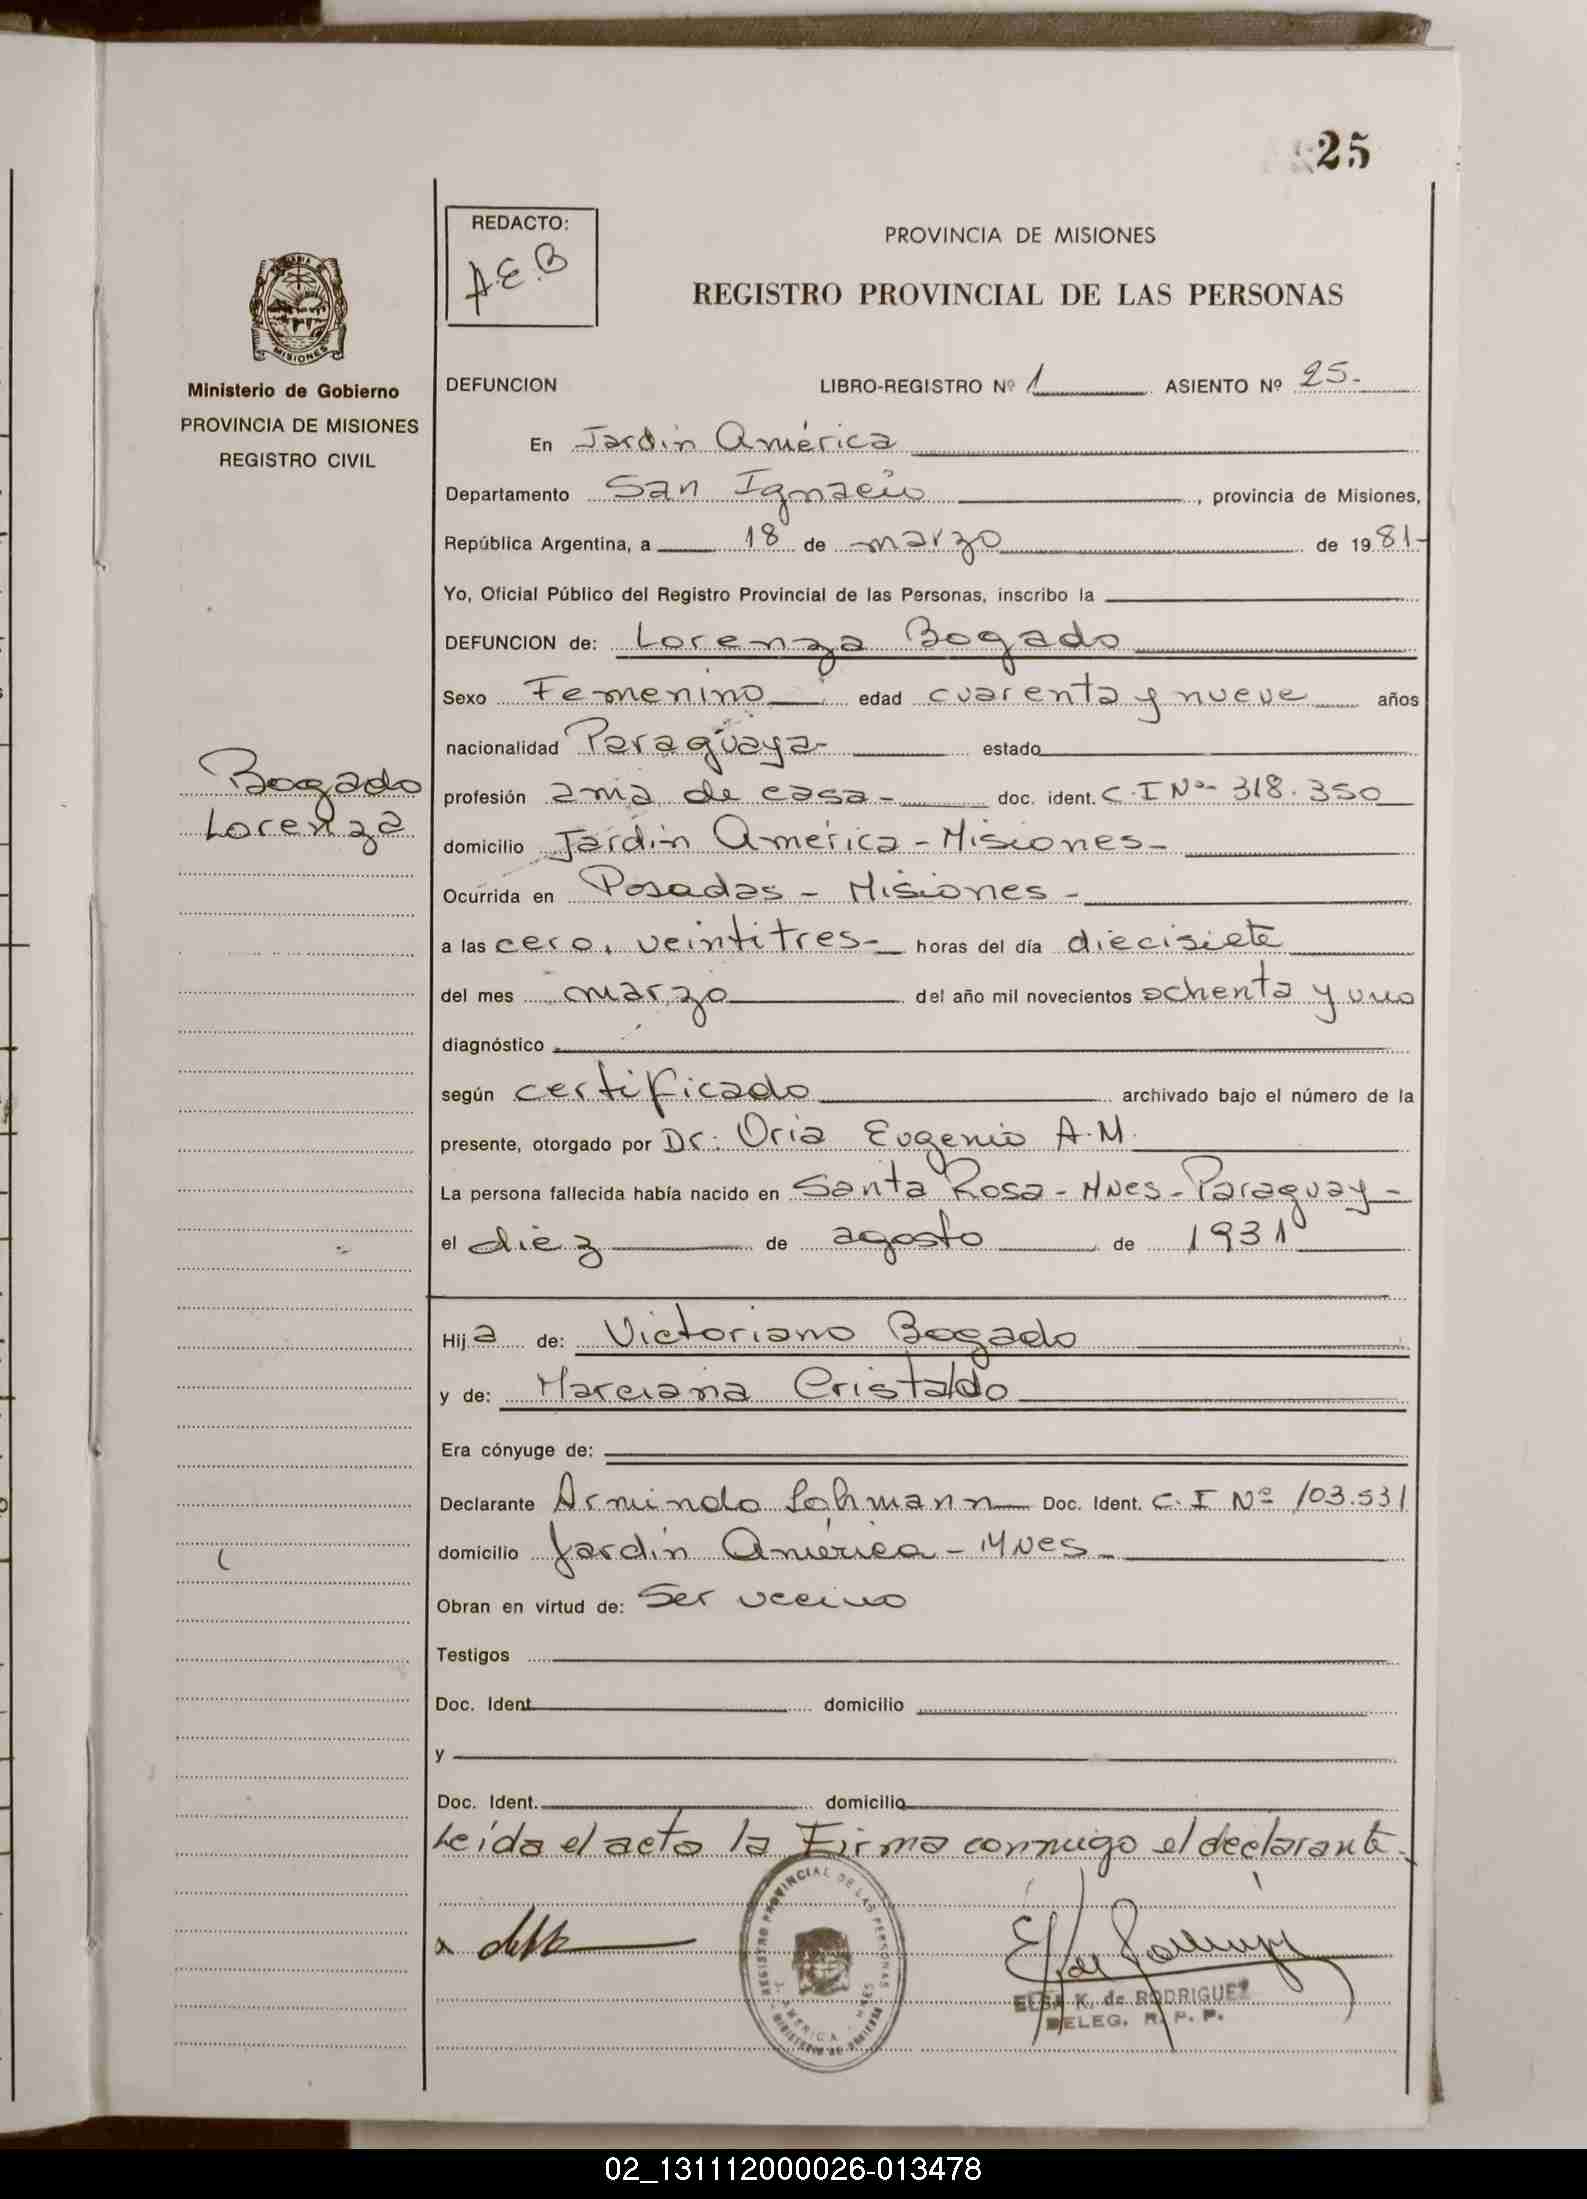 25
REDACTO:
A.E.B
PROVINCIA DE MISIONES
REGISTRO PROVINCIAL DE LAS PERSONAS
MISIONES
Ministerio de Gobierno
PROVINCIA DE MISIONES
REGISTRO CIVIL
DEFUNCION LIBRO-REGISTRO Nº 1 ASIENTO Nº 25-
En Jardín América
Departamento San Ignacio, provincia de Misiones,
República Argentina, a 18 de marzo de 1981-
Yo, Oficial Público del Registro Provincial de las Personas, inscribo la
DEFUNCION de: Lorenza Bogado
Sexo Femenino edad cuarenta y nueve años
nacionalidad Paraguaya- estado
Bogado
Lorenza
profesión ama de casa- doc. ident. C.I Nº- 318.350
domicilio Jardín América - Misiones-
Ocurrida en Posadas - Misiones-
a las cero, veintitres- horas del día diecisiete
del mes marzo del año mil novecientos ochenta y uno
diagnóstico
según certificado archivado bajo el número de la
presente, otorgado por Dr: Oria Eugenio A.M.
La persona fallecida había nacido en Santa Rosa - Mnes - Paraguay-
el diez de agosto de 1931
Hija de: Victoriano Bogado
y de: Marciana Cristaldo
Era cónyuge de:
Declarante Armindo Lohmann Doc. Ident. C.I Nº 103.531
domicilio Jardín América - Mnes-
Obran en virtud de: Ser vecino
Testigos
Doc. Ident. domicilio
y
Doc. Ident. domicilio
Leída el acta la Firma conmigo el declarante.
REGISTRO PROVINCIAL DE LAS PERSONAS
ELSA K. de RODRIGUEZ
DELEG. R. P. P.
02_131112000026-013478